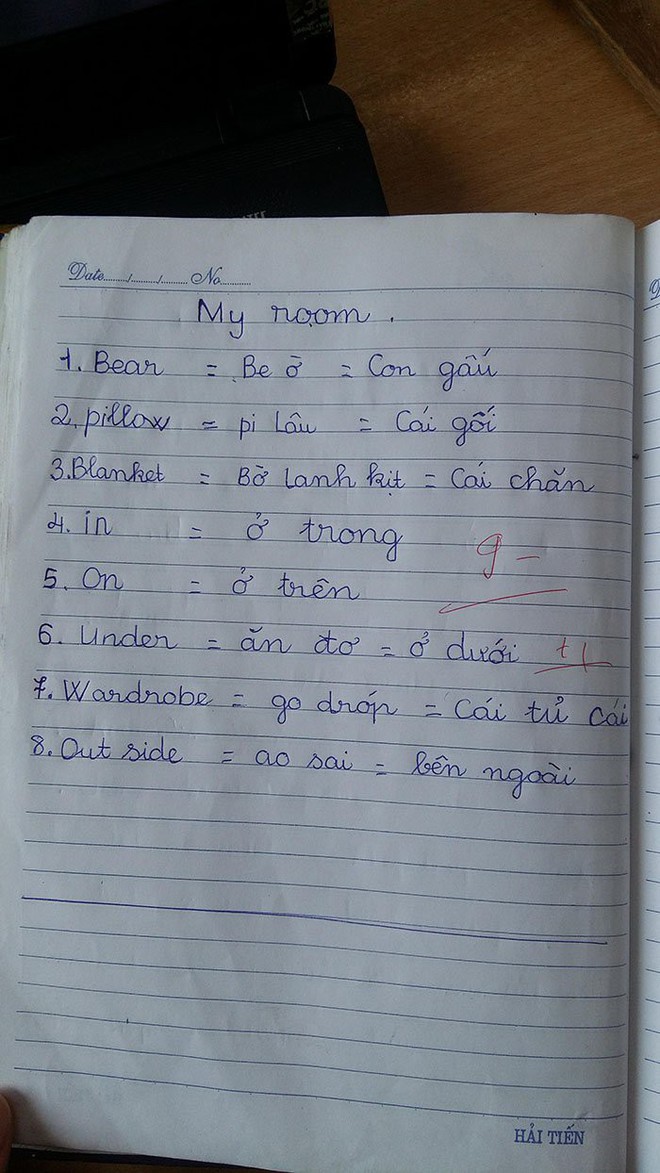 Date......./......../........ No...........
My room.
1. Bear = Be ờ = Con gấu
2. pillow = pi Lâu = Cái gối
3. Blanket = Bờ lanh kịt = Cái chăn
4. in = ở trong
9-
5. On = ở trên
6. Under = ăn đơ = ở dưới +1
7. Wardrobe = go dróp = Cái tủ cái
8. Out side = ao sai = bên ngoài
HẢI TIẾN